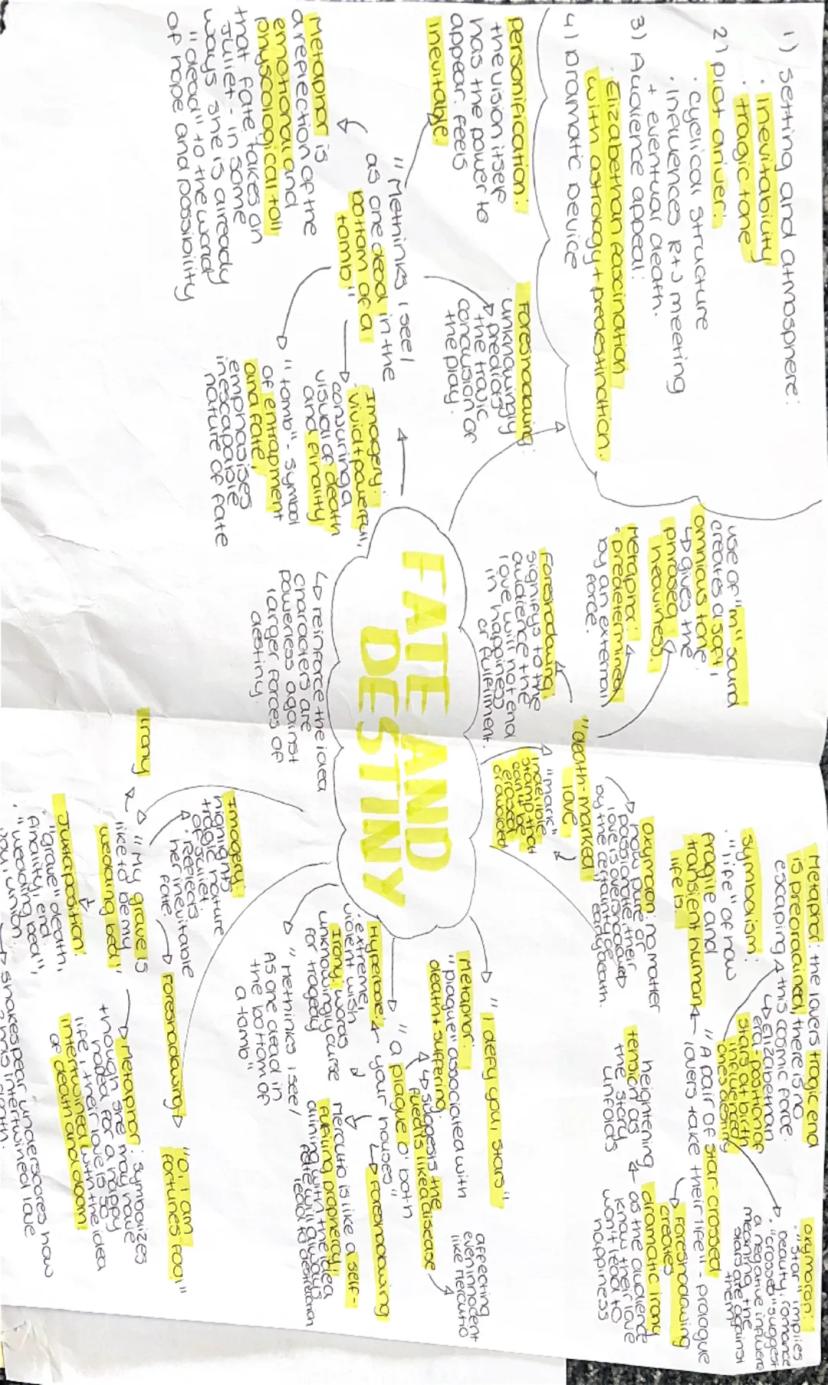 1) Setting and atmosphere:
· inevitability
· tragic tone
2) plot driver:
· cyclical structure
· influences R+J meeting
+ eventual death.
3) Audience appeal:
· Elizabethan fascination
with astrology + predestination.
4) Dramatic Device
personification:
the vision itself
has the power to
appear. feels
inevitable.
Foreshadowing:
unknowingly
predicts
the trajic
conclusion of
the play.
"Methinks I see/
as one dead in the
bottom of a
tomb"
Metaphor is
a reflection of the
emotional and
that fate, takes on
Juliet - in some
ways she is already
"dead" to the world
of hope and possibility
Imagery:
vivid + powerful,
conjuring a
visual of death
and finality
"tomb" - symbol
of entrapment
and fate,
emphasises
inescapable
nature of fate
FATE AND
DESTINY
↳ reinforce the idea
characters are
powerless against
larger forces of
destiny.
use of "m" sound
creates a soft,
ominous tone.
↳ gives the
phrase a
heaviness.
Metaphor:
· predetermined
by an external
force.
Foreshadowing:
signifys to the
audience the
love will not end
in happiness
or fulfillment.
"death-marked
love"
"mark"
indelible
stamp that
can't be
erased
oxymoron: no matter
how pure or
passionate, their
love is overshadowed
by the certainty of
early death.
Metaphor: the lovers tragic end
is preordained, there is no
escaping this cosmic force.
↳ Elizabethan
era - position of
stars at birth
influenced
ones destiny
symbolism:
"life" of how
fragile and
transient human
life is
"A pair of star-crossed
lovers take their life" - prologue
oxymoron:
"star" implies
beauty, romance
"crossed" suggest
a negative influence
meaning the
stars are against
them
Foreshadowing
creates
dramatic irony
as the audience
know their love
won't lead to
happiness
heightening
tension as
the story
unfolds
"I defy you, stars"
Metaphor:
"plague" associated with
death + suffering.
↳ suggests the
fued is like a disease
affecting
even innocent
like mercutio
"a plague o' both
your houses"
Foreshadowing
Hyperbole:
· extreme,
violent wish
Irony: words
unknowingly curse
for tragedy
Mercutio is like a self-
fulfiling prophercy,
alining with the idea
lead to destruction
"Methinks I see/
As one dead in
the bottom of
a tomb"
Imagery:
highlights
tragic nature
of Juliet
· reflects
her inevitable
fate.
Irony
"My grave is
like to be my
wedding bed"
Foreshadowing
"O, I am
fortunes fool"
Juxtaposition:
"grave" death,
finality, end
· "wedding bed",
joy, union.
Metaphor: symbolizes
though she may have
hoped for a happy
life, their love is so
intertwined with the idea
of death and doom
↳ shakespear underscores how